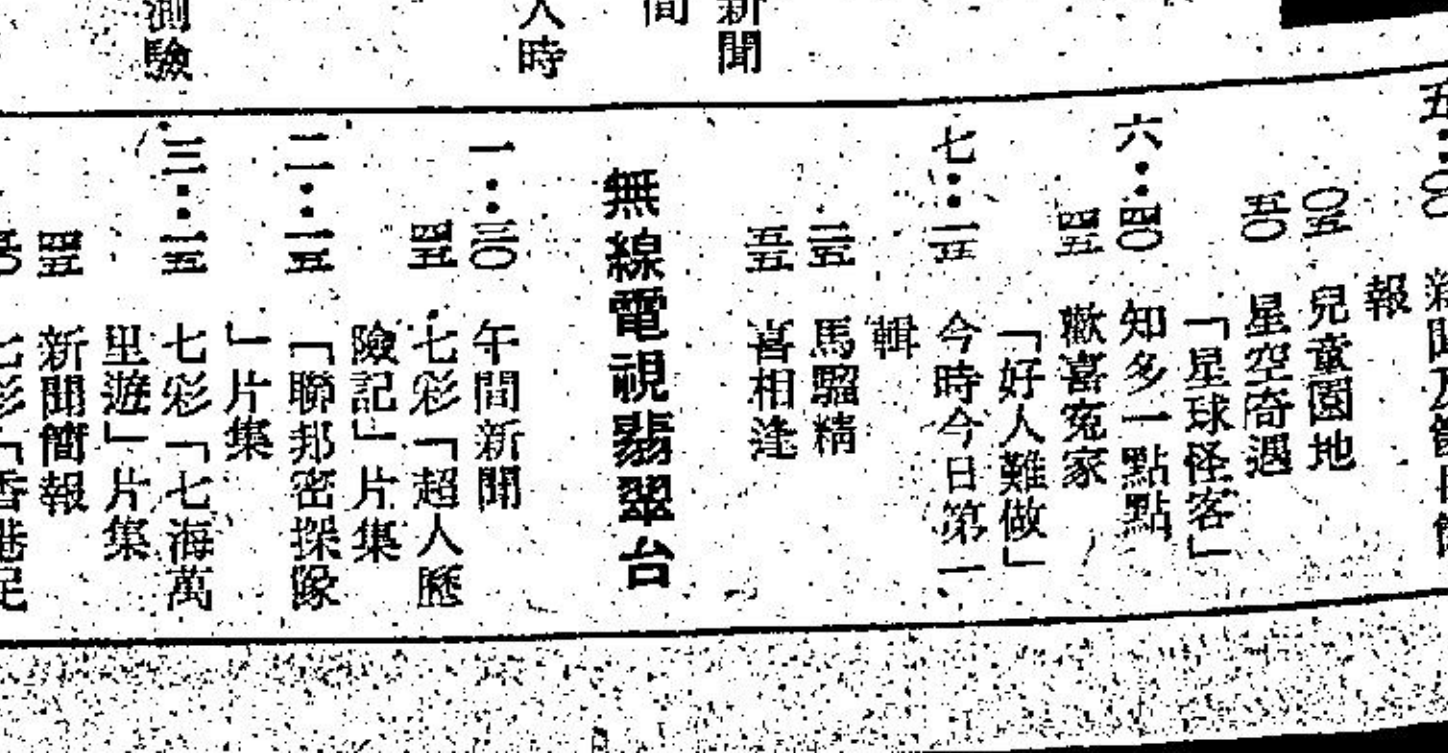 新聞
間
人時
測驗
五：〇〇 新聞及
報
〇五 兒童園地
五〇 星空奇遇
「星球怪客」
六：四〇 知多一點點
四五 歡喜寃家
「好人難做」
七：一五 今時今日第一
輯
三五 馬騮精
五五 喜相逢
無線電視翡翠台
一：三〇 午間新聞
四五 七彩「超人歷
險記」片集
二：一五 「聯邦密探隊
」片集
三：一五 七彩「七海萬
里遊」片集
四五 新聞簡報
七彩「香港足